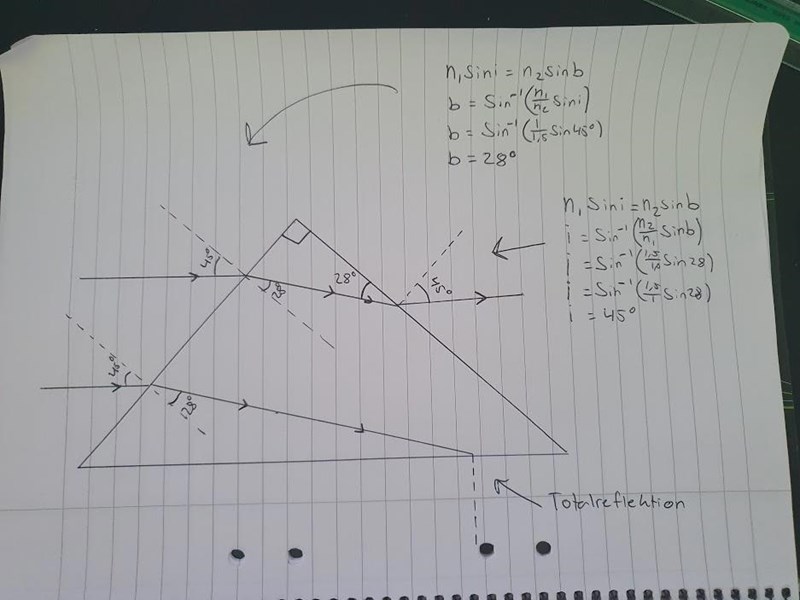 n₁ sin i = n₂ sin b
b = Sin⁻¹(n₁/n₂ sin i)
b = Sin⁻¹(1/1,5 Sin 45°)
b = 28°
n₁ Sin i = n₂ sin b
i = Sin⁻¹(n₂/n₁ sin b)
i = Sin⁻¹(1,5/1,0 Sin 28)
i = Sin⁻¹(1,5/1 Sin 28)
i = 45°
45°
28°
28°
45°
45°
28°
Totalreflektion